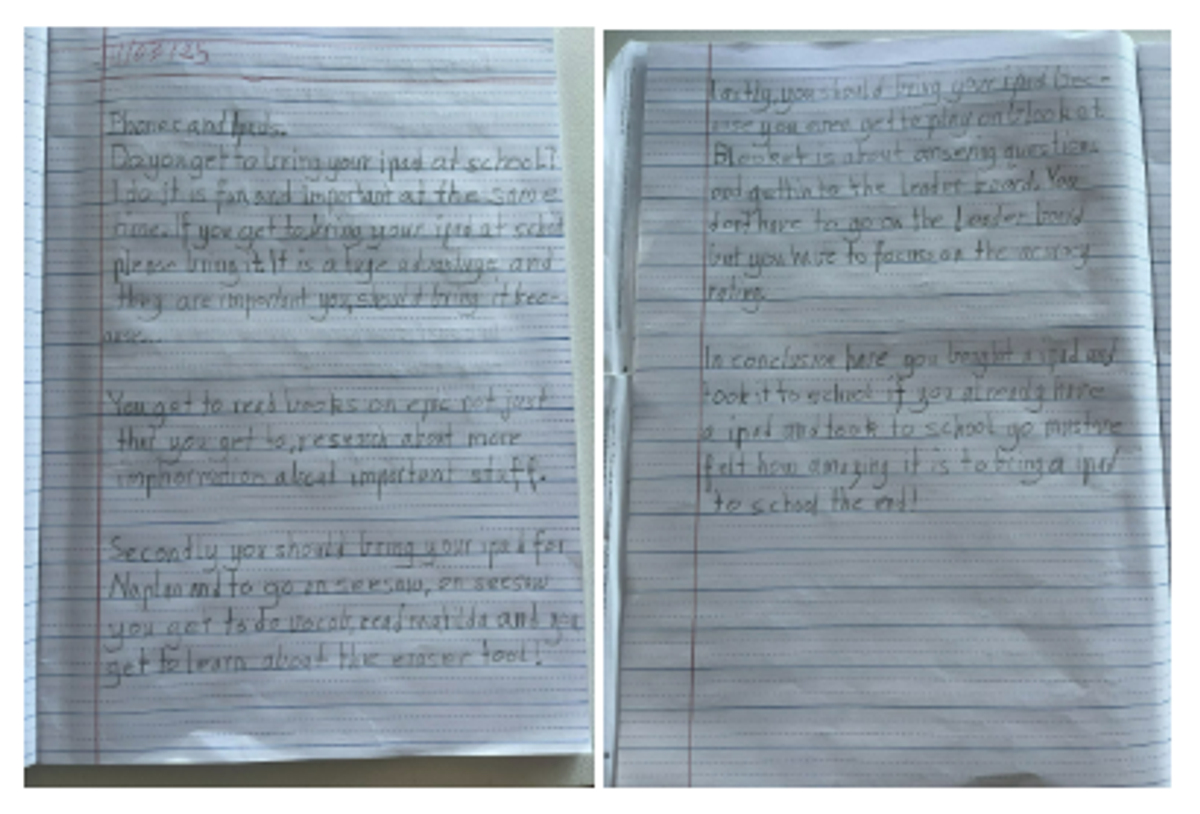 Phones and Ipads.
Do you get to bring your ipad at school?
I do it is fun and important at the same
time. If you get to bring your ipad at school
please bring it. It is a huge advantage and
they are important you should bring it bec-
ause...
You get to read books on epic not just
that you get to, research about more
imphormation about important stuff.
Secondly you should bring your ipad for
Naplan and to go on seesaw, on seesaw
you get to do vocab, read matilda and you
get to learn about the eraser tool!
Lastly, you should bring your ipad bec-
ause you even get to play on blooket
Blooket is about answering questions
and gettin to the leader board. You
don't have to go on the Leader bord
but you have to focus on the accuracy
rating.
In conclusion have you bought a ipad and
took it to school if you already have
a ipad and took to school you
felt how amazing it is to bring a ipad
to school the end!